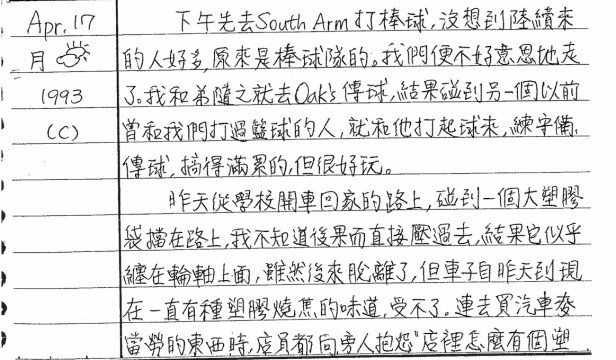 Apr. 17
月
1993
(C)
下午先去South Arm打棒球,沒想到陸續來
的人好多,原來是棒球隊的。我們便不好意思地走
了。我和弟隨之就去Oak's傳球,結果碰到另一個以前
曾和我們打過籃球的人,就和他打起球來,練守備、
傳球,搞得滿累的,但很好玩。
昨天從學校開車回家的路上,碰到一個大塑膠
袋擋在路上,我不知道後果而直接壓過去,結果它似乎
纏在輪軸上面,雖然後來脫離了,但車子自昨天到現
在一直有種塑膠燒焦的味道,受不了。連去買汽車麥
當勞的東西時,店員都向旁人抱怨"店裡怎麼有個塑